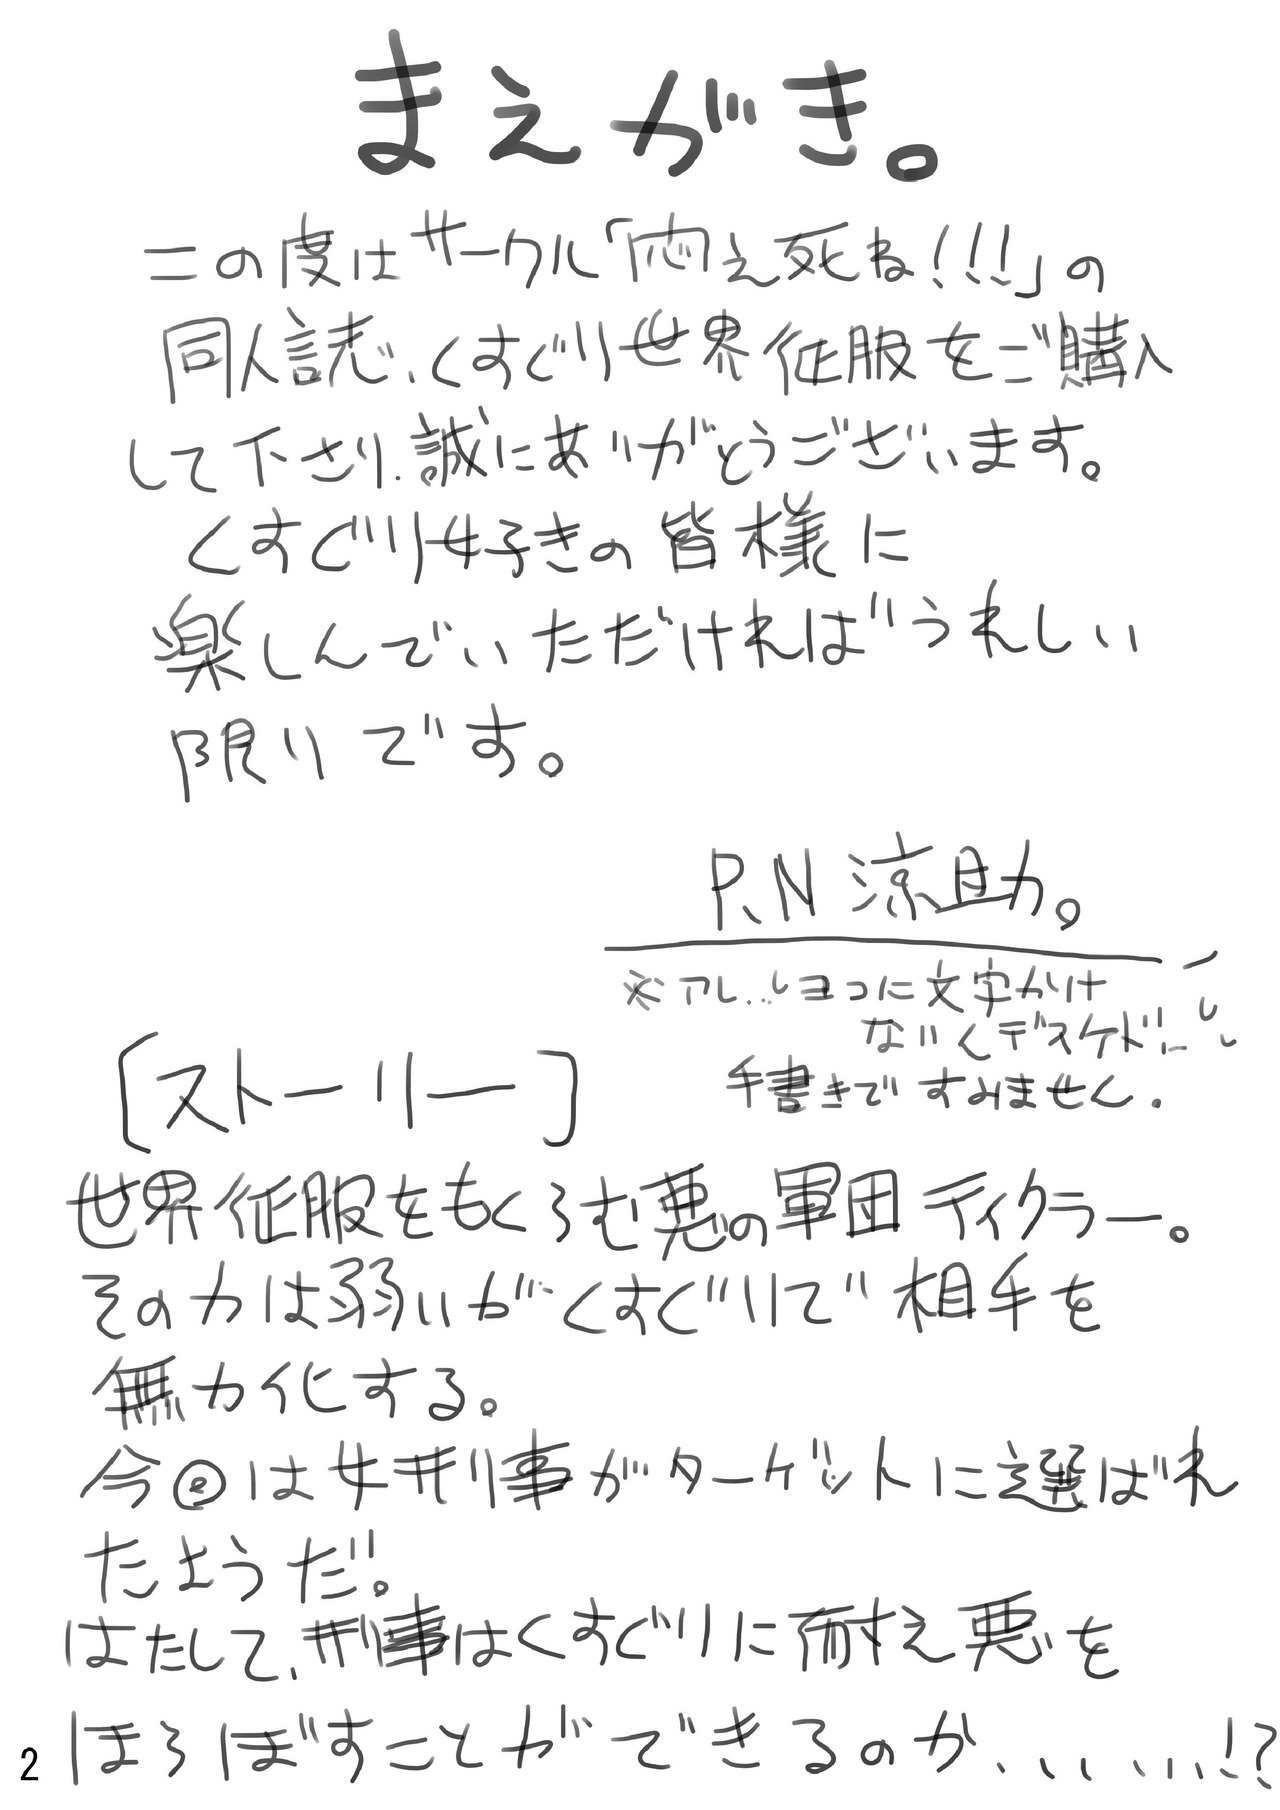 まえがき。
この度はサークル「悶え死ね!!!」の
同人誌、くすぐり世界征服をご購入
して下さり、誠にありがとうございます。
くすぐり好きの皆様に
楽しんでいただければうれしい
限りです。
P.N 涼助。
※アレ…レヨコに文字かけ
ないくデスケド…
手書きですみません.
[ストーリー]
世界征服をもくろむ悪の軍団ティクラー。
その力は弱いがくすぐりで相手を
無力化する。
今回は女刑事がターゲットに選ばれ
たようだ。
はたして、刑事はくすぐりに耐え悪を
ほろぼすことができるのか、、、、、、!?
2